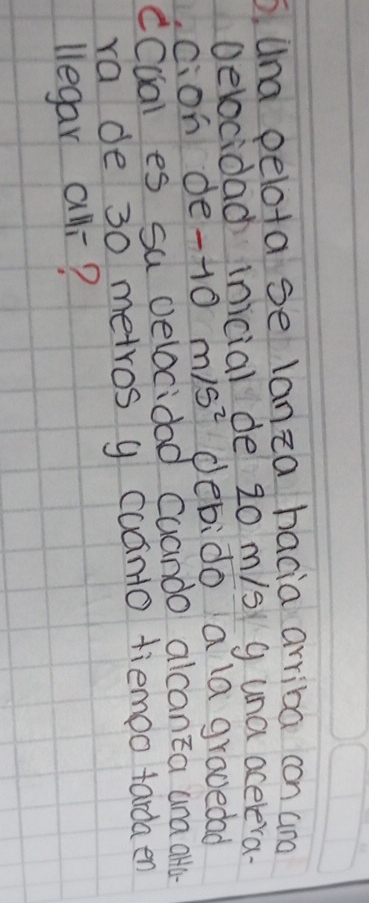 5. Una pelota se lanza hacia arriba con una
velocidad inicial de 20 m/s y una acelera-
ción de -10 m/s² debido a la gravedad
¿Cuál es su velocidad cuando alcanza una altu-
ra de 30 metros y cuánto tiempo tarda en
llegar allí?